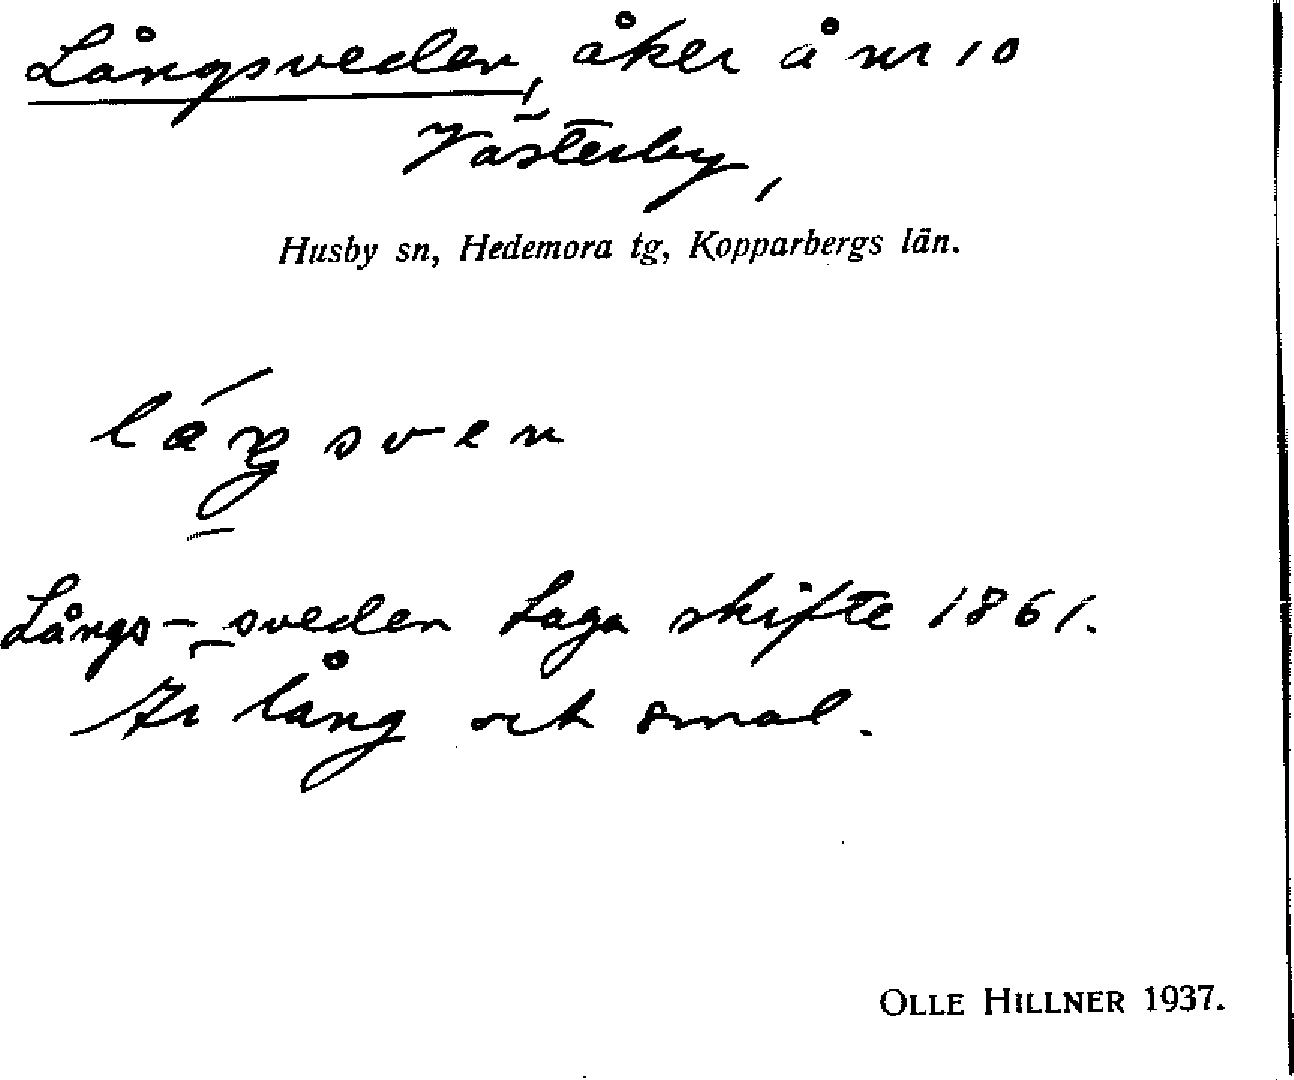 Långsveden, åker å nr 10
Västerby,
Husby sn, Hedemora tg, Kopparbergs län.
Långs-sveden Laga skifte 1861.
Är lång och smal.
OLLE HILLNER 1937.